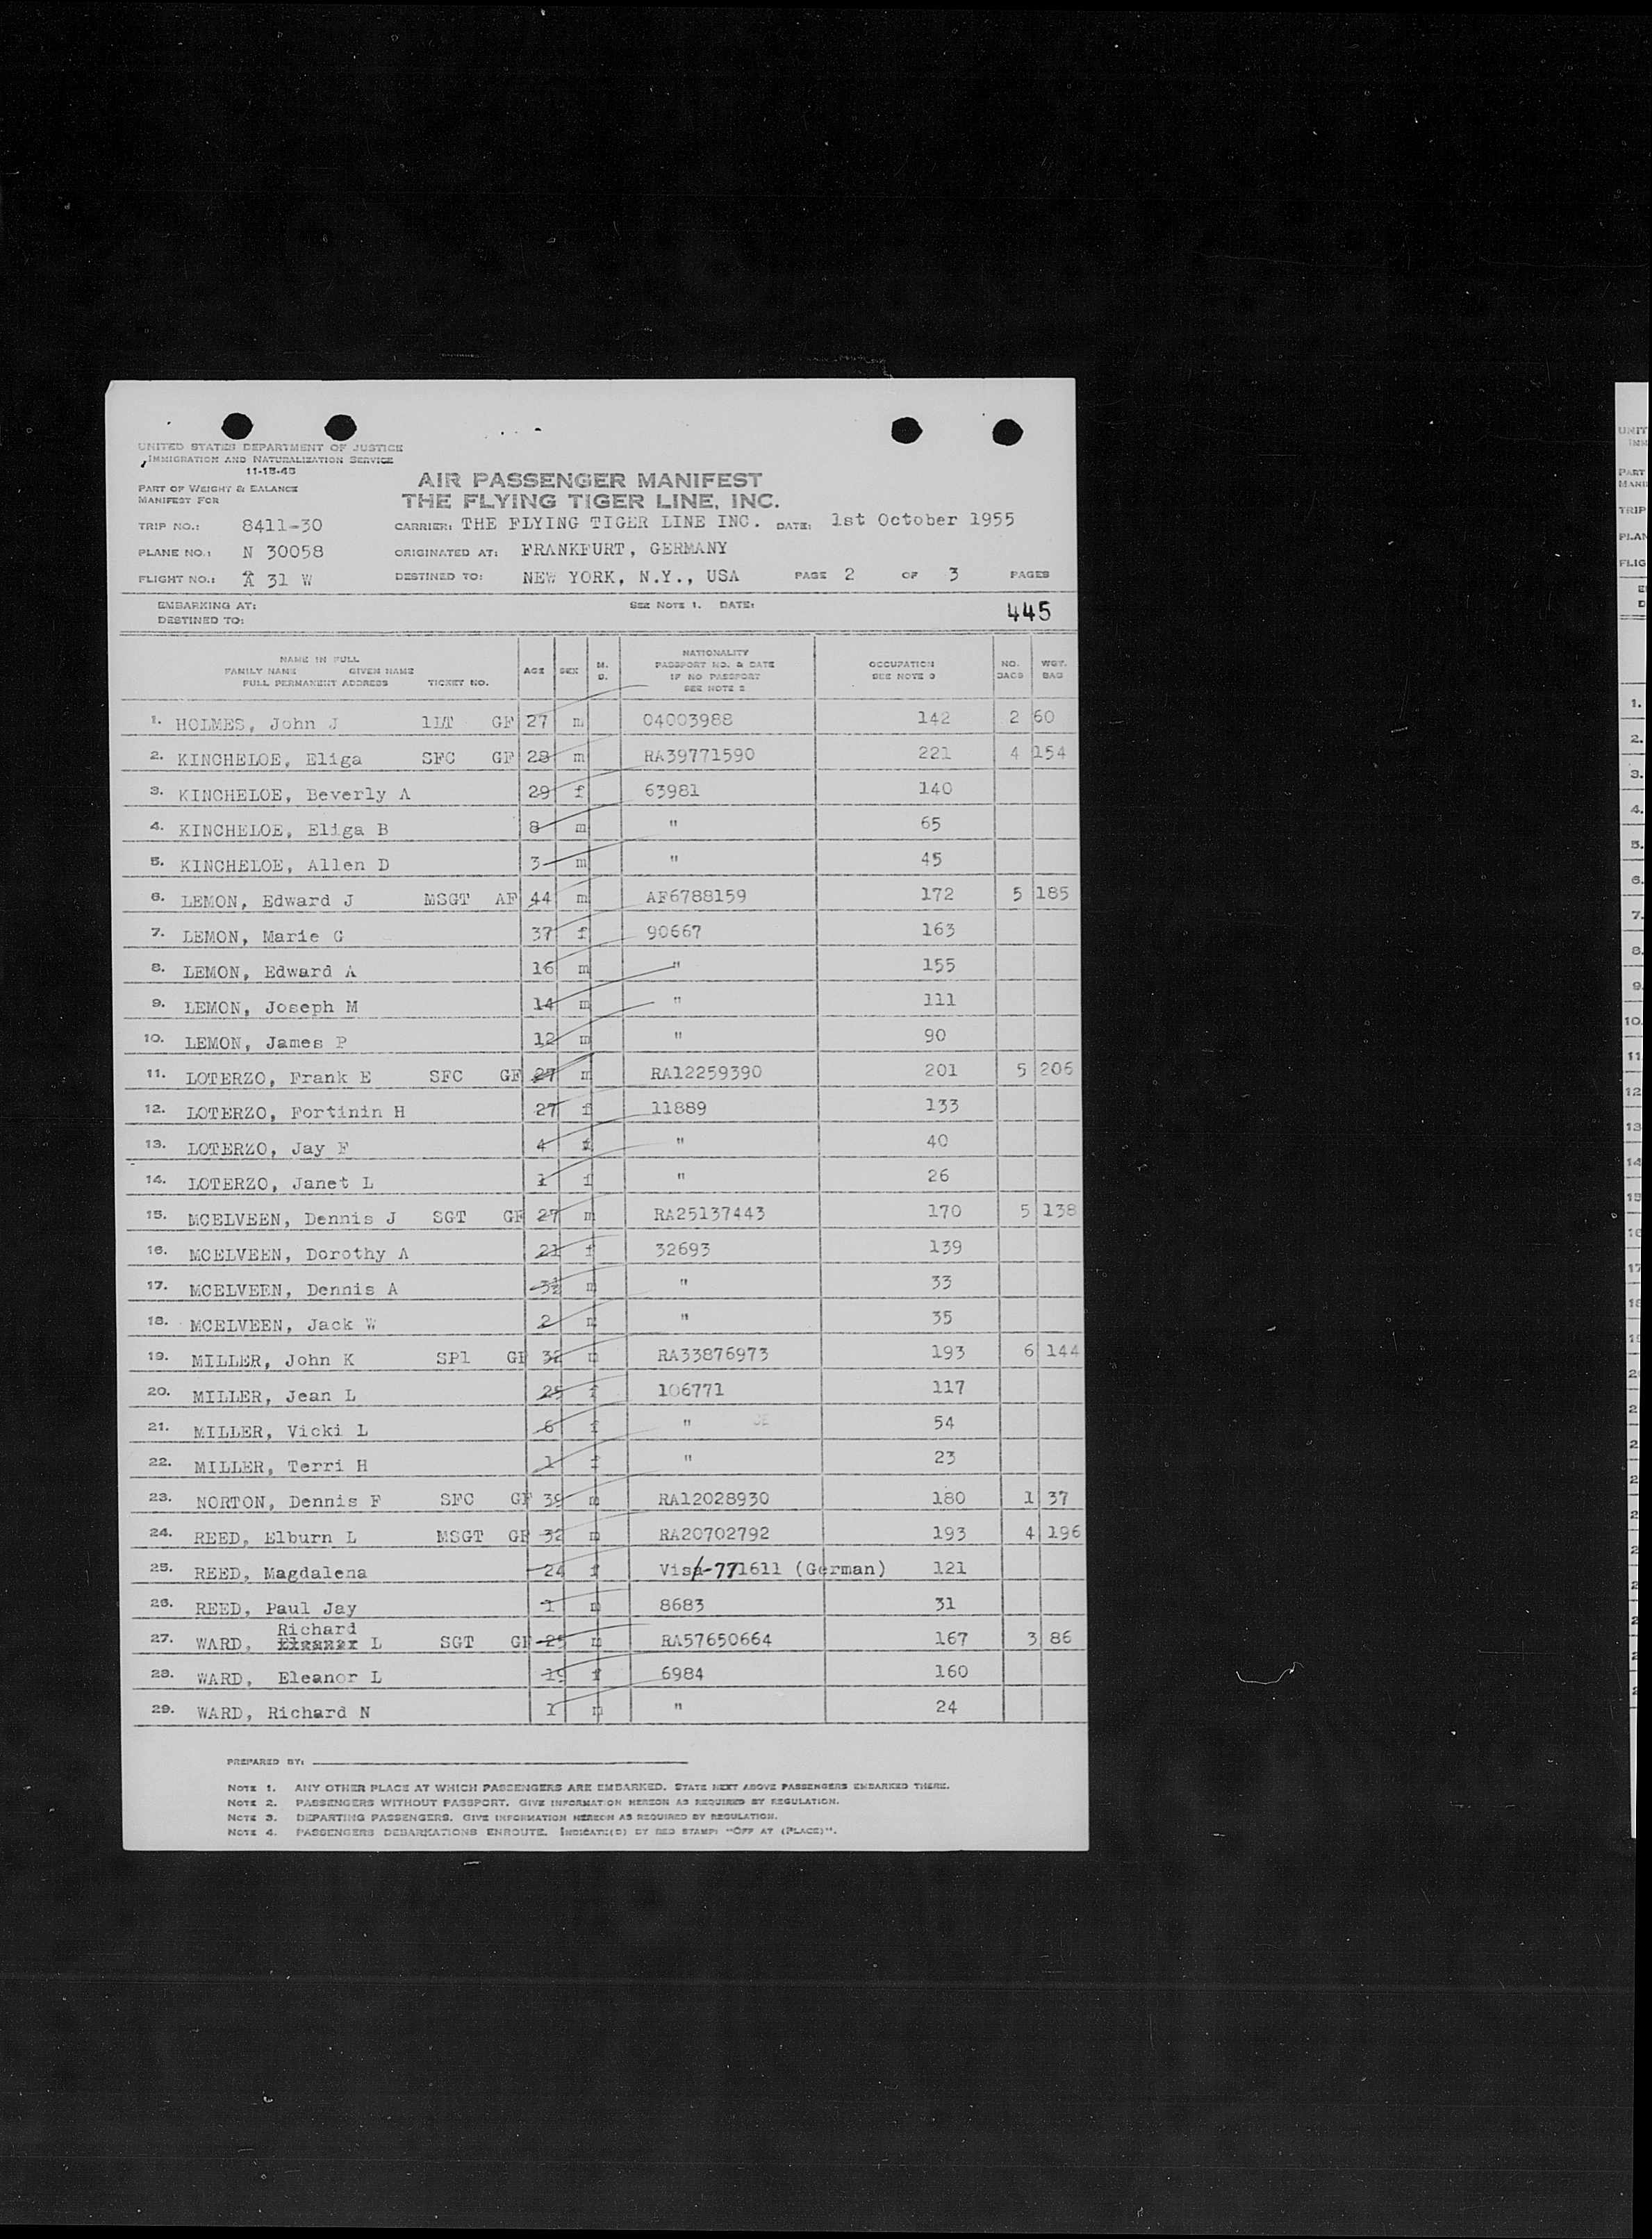 UNITED STATES DEPARTMENT OF JUSTICE
IMMIGRATION AND NATURALIZATION SERVICE
11-15-45
PART OF WEIGHT & BALANCE
MANIFEST FOR
AIR PASSENGER MANIFEST
THE FLYING TIGER LINE, INC.
TRIP NO.: 8411-30 CARRIER: THE FLYING TIGER LINE INC. DATE: 1st October 1955
PLANE NO.: N 30058 ORIGINATED AT: FRANKFURT, GERMANY
FLIGHT NO.: A 31 W DESTINED TO: NEW YORK, N.Y., USA PAGE 2 OF 3 PAGES
EMBARKING AT: SEE NOTE 1. DATE: 445
DESTINED TO:
NAME IN FULL
FAMILY NAME GIVEN NAME
FULL PERMANENT ADDRESS TICKET NO. AGE SEX M. S. NATIONALITY PASSPORT NO. & DATE IF NO PASSPORT SEE NOTE 2 OCCUPATION SEE NOTE 3 NO. BAGS WGT. BAG
1. HOLMES, John J 1LT GF 27 m 04003988 142 2 60
2. KINCHELOE, Eliga SFC GF 28 m RA39771590 221 4 154
3. KINCHELOE, Beverly A 29 f 63981 140
4. KINCHELOE, Eliga B 8 m " 65
5. KINCHELOE, Allen D 3 m " 45
6. LEMON, Edward J MSGT AF 44 m AF6788159 172 5 185
7. LEMON, Marie G 37 f 90667 163
8. LEMON, Edward A 16 m " 155
9. LEMON, Joseph M 14 m " 111
10. LEMON, James P 12 m " 90
11. LOTERZO, Frank E SFC GF 27 m RA12259390 201 5 206
12. LOTERZO, Fortinin H 27 f 11889 133
13. LOTERZO, Jay F 4 f " 40
14. LOTERZO, Janet L 1 f " 26
15. MCELVEEN, Dennis J SGT GF 27 m RA25137443 170 5 138
16. MCELVEEN, Dorothy A 21 f 32693 139
17. MCELVEEN, Dennis A 3½ m " 33
18. MCELVEEN, Jack W 2 m " 35
19. MILLER, John K SP1 GF 32 m RA33876973 193 6 144
20. MILLER, Jean L 25 f 106771 117
21. MILLER, Vicki L 6 f " 54
22. MILLER, Terri H 1 f " 23
23. NORTON, Dennis F SFC GF 39 m RA12028930 180 1 37
24. REED, Elburn L MSGT GF 32 m RA20702792 193 4 196
25. REED, Magdalena 24 f Visa-771611 (German) 121
26. REED, Paul Jay 1 m 8683 31
Richard
27. WARD, Eleanor L SGT GF 25 m RA57650664 167 3 86
28. WARD, Eleanor L 19 f 6984 160
29. WARD, Richard N 1 m " 24
PREPARED BY:
NOTE 1. ANY OTHER PLACE AT WHICH PASSENGERS ARE EMBARKED. STATE NEXT ABOVE PASSENGERS EMBARKED THERE.
NOTE 2. PASSENGERS WITHOUT PASSPORT. GIVE INFORMATION HEREON AS REQUIRED BY REGULATION.
NOTE 3. DEPARTING PASSENGERS. GIVE INFORMATION HEREON AS REQUIRED BY REGULATION.
NOTE 4. PASSENGERS DEBARKATIONS ENROUTE. INDICATE(D) BY RED STAMP: "OFF AT (PLACE)".